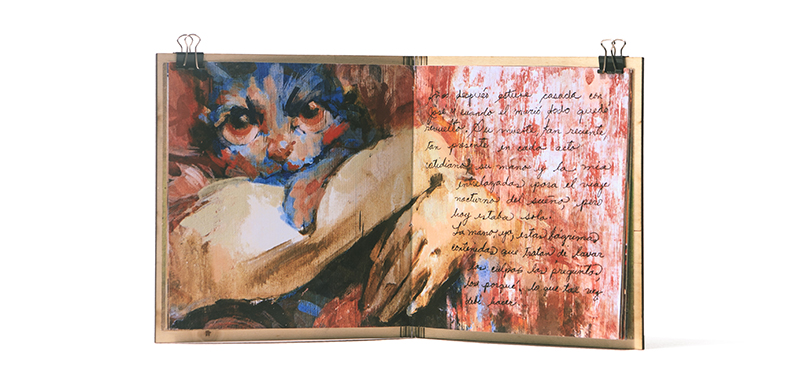 después estuve casada con
José y cuando él murió todo quedó
revuelto. Su muerte tan reciente
tan presente en cada acto
cotidiano, su mano y la mía
entrelazadas para el viaje
nocturno del sueño pero
hoy estaba sola.
La mano, yo, estas lágrimas
contenidas que tratan de lavar
las culpas las preguntas
los porqué, lo que tal vez
debí hacer.